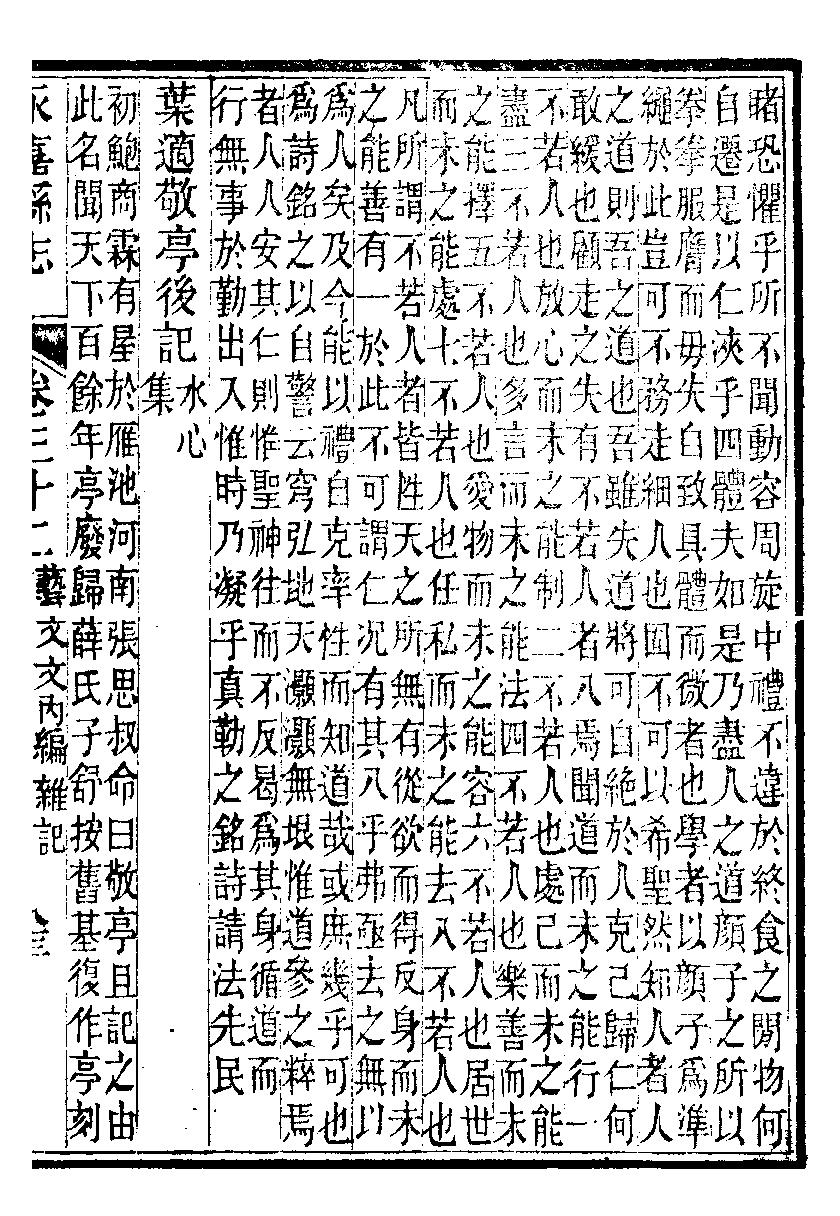 睹恐懼乎所不聞動容周旋中禮不違於終食之閒物何
自遷是以仁浹乎四體夫如是乃盡人之道顔子之所以
拳拳服膺而毋失自致具體而微者也學者以顔子爲準
繩於此豈可不務走細人也固不可以希聖然知人者人
之道則吾之道也吾雖失道將可自絶於人克己歸仁何
敢緩也顧走之失有不若人者八焉聞道而未之能行一
不若人也放心而未之能制二不若人也處己而未之能
盡三不若人也多言而未之能法四不若人也樂善而未
之能擇五不若人也愛物而未之能容六不若人也居世
而未之能處七不若人也任私而未之能去八不若人也
凡所謂不若人者皆性天之所無有從欲而得反身而未
之能善有一於此不可謂仁况有其八乎弗亟去之無以
爲人矣及今能以禮自克率性而知道哉或庶幾乎可也
爲詩銘之以自警云穹弘地天灝灝無垠惟道參之粹焉
者人人安其仁則惟聖神往而不反曷爲其身循道而
行無事於勤出入惟時乃凝乎真勒之銘詩請法先民
葉適敬亭後記水心集
初鮑商霖有屋於雁池河南張思叔命曰敬亭且記之由
此名聞天下百餘年亭廢歸薛氏子舒按舊基復作亭刻
永嘉縣志 卷三十二 藝文文內編 雜記